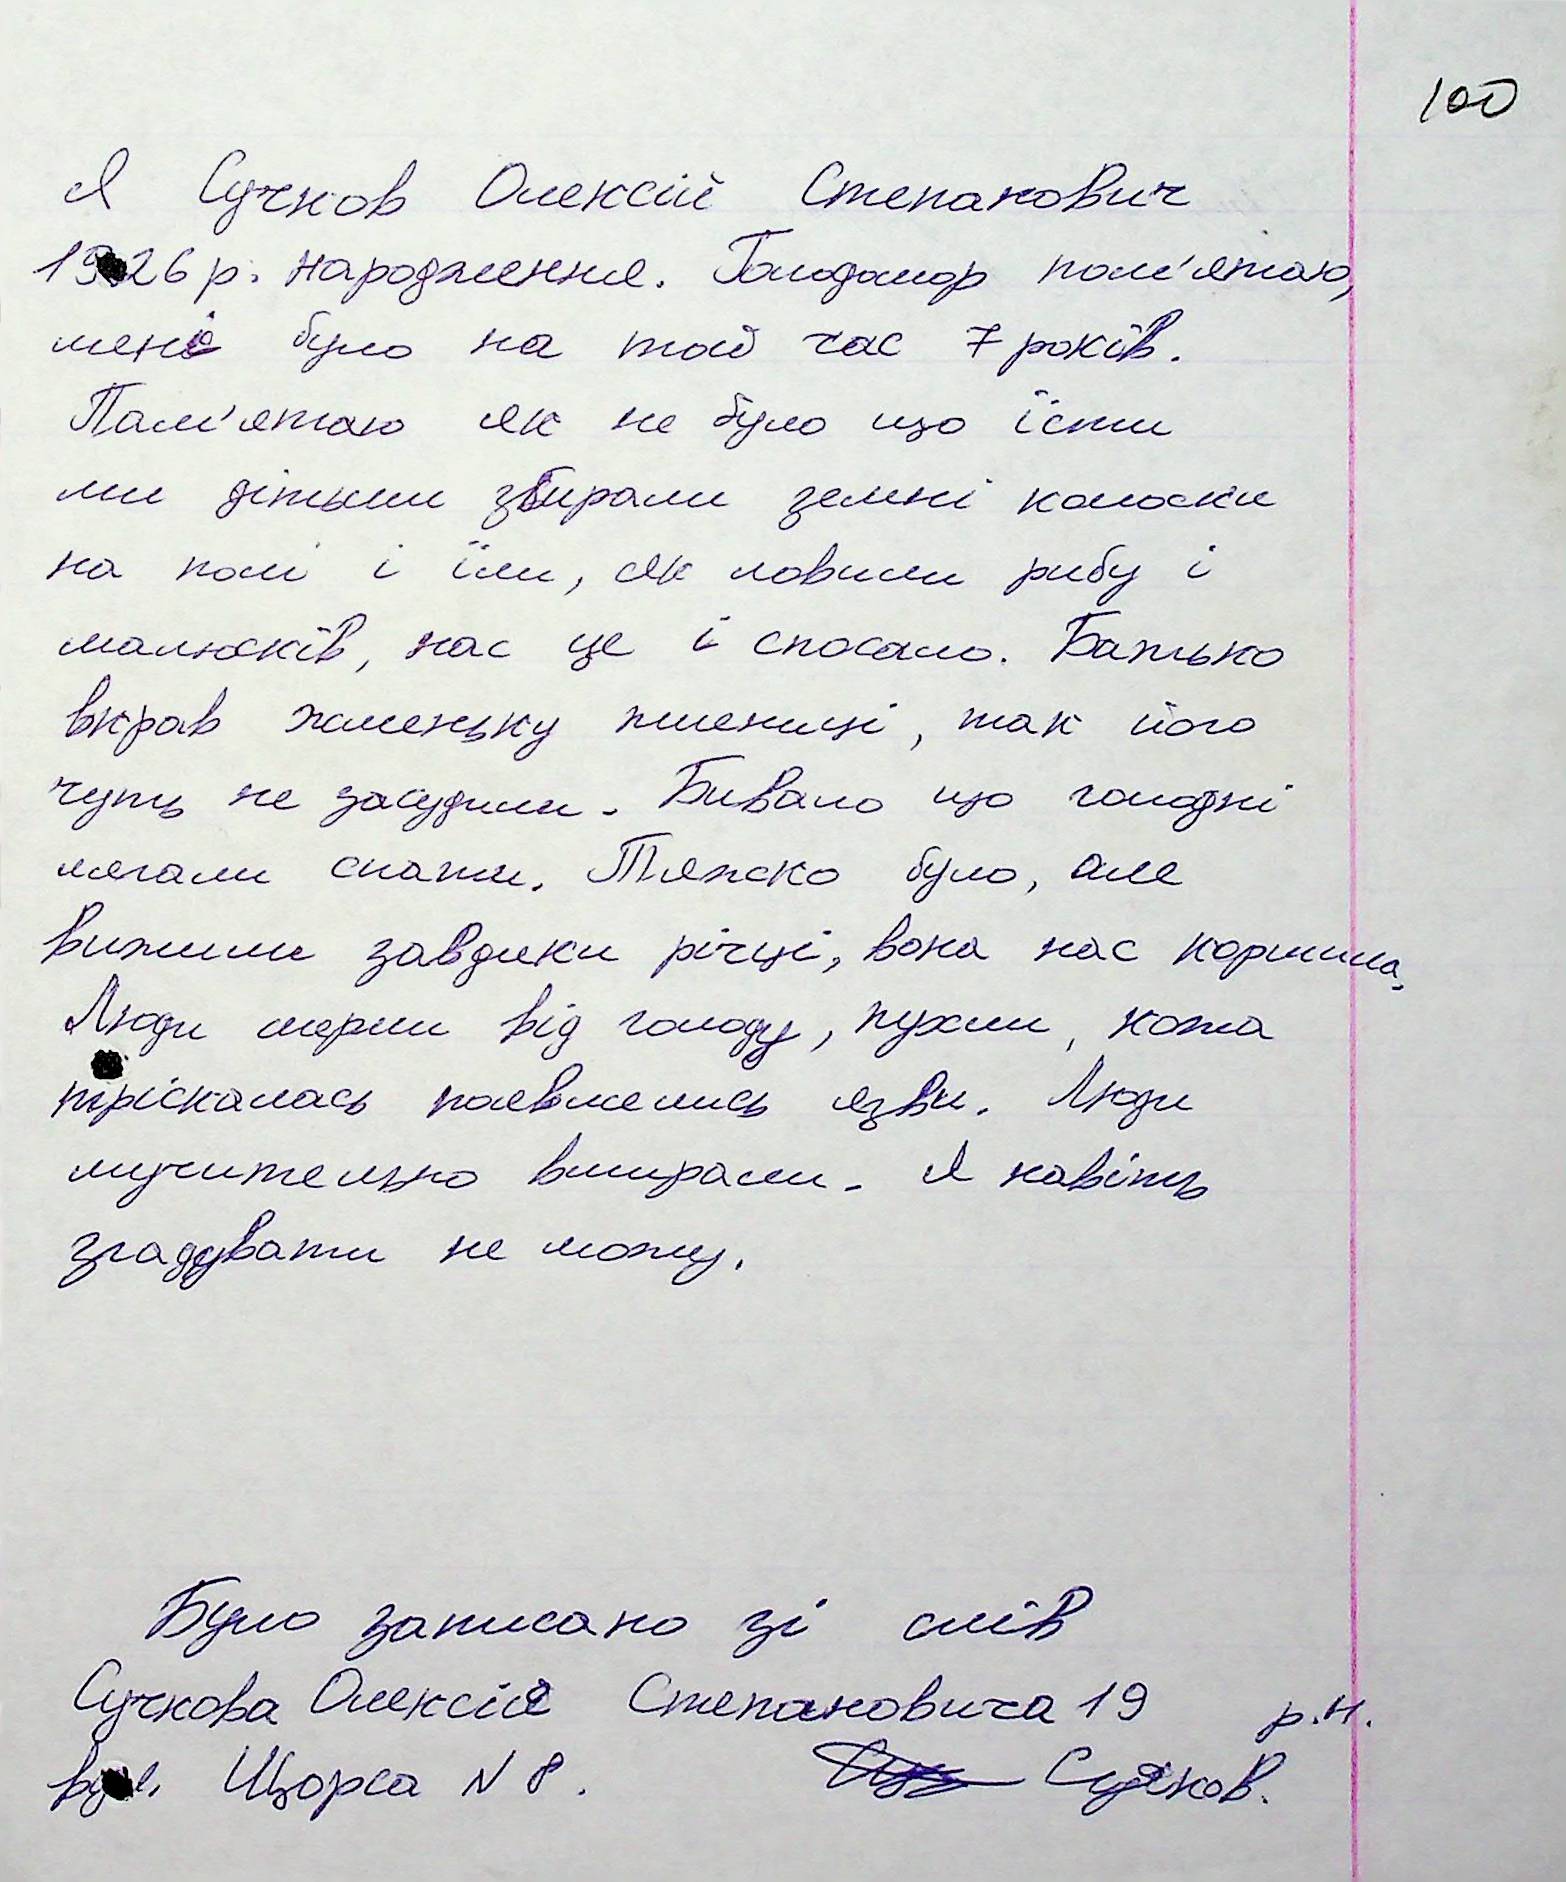 100
Я Сучков Олексій Степанович
1926 р. народження. Голодомор пам'ятаю,
мені було на той час 7 років.
Пам'ятаю як не було що їсти
ми дітьми збирали земні колоски
на полі і їли, як ловили рибу і
малюсків, нас це і спасало. Батько
вкрав жменьку пшениці, так його
чуть не засудили. Бивало що голодні
лягали спати. Тяжко було, але
вижили завдяки річці, вона нас кормила.
Люди мерли від голоду, пухли, кожа
тріскалась появлялись язви. Люди
мучительно вмирали. Я навіть
згадувати не можу.
Було записано зі слів
Сучкова Олексія Степановича 19 р.н.
вул. Щорса N 8. Сучков.